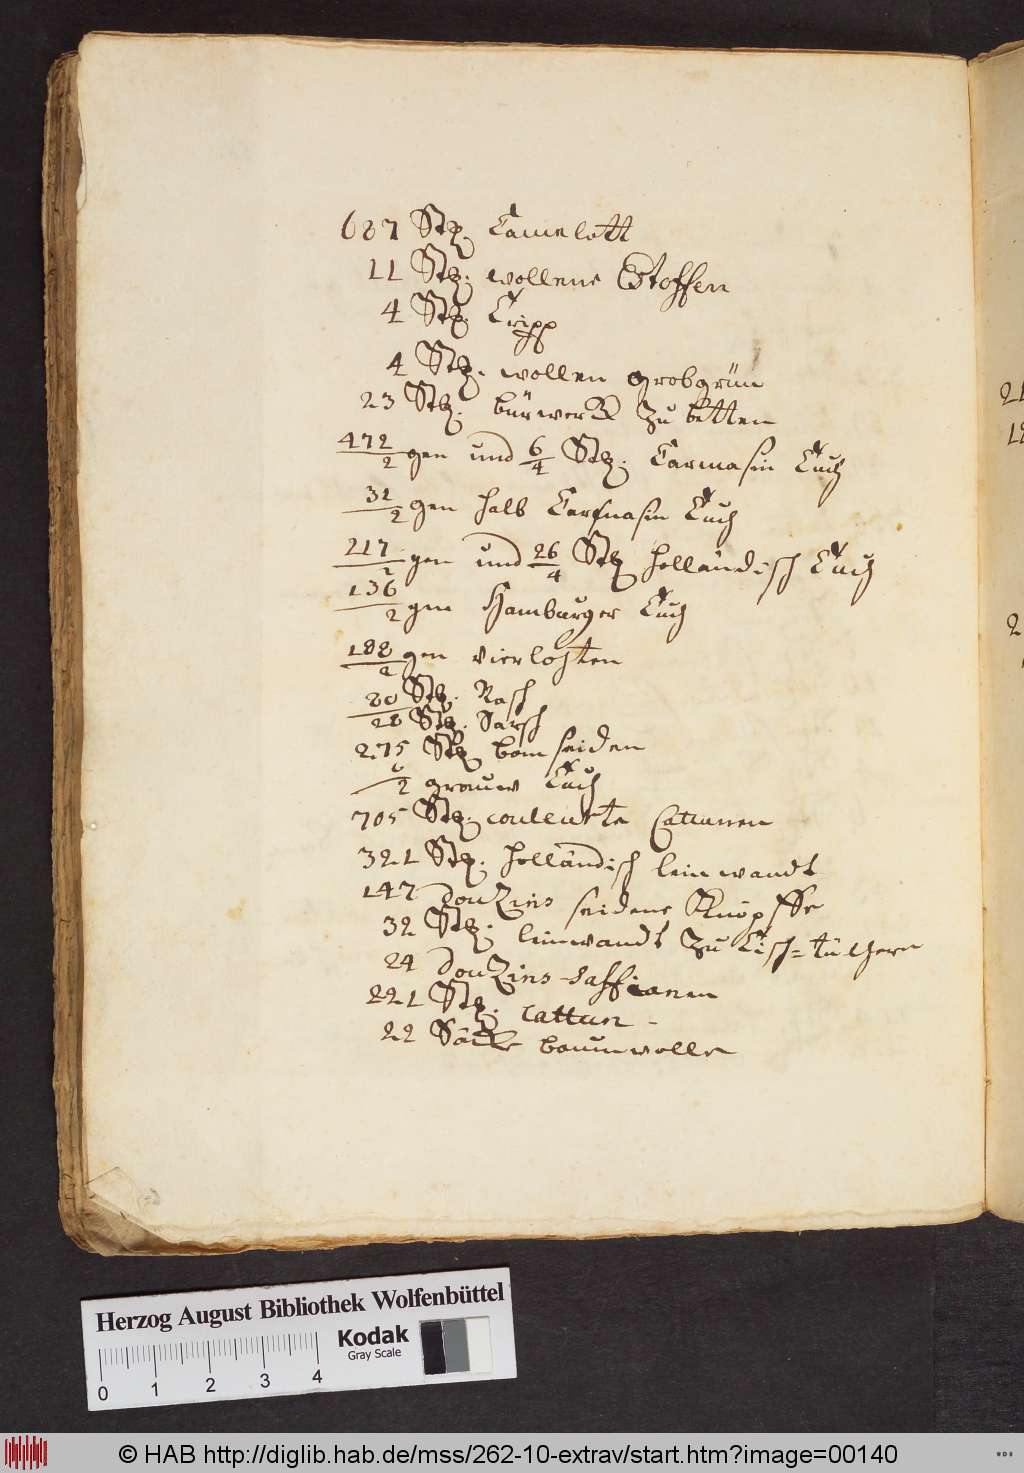 687 Stk. Camelott
11 Stk. wollene Stoffen
4 Stk. Cripp
4 Stk. wollen grobgrün
23 Stk. bürwerk zu betten
472/2 gen und 6/4 Stk. Carmasin Tuch
31/2 gen halb Carmasin Tuch
217/2 gen und 26/4 Stk holländisch Tuch
136/2 gen Hamburger Tuch
188/2 gen vierlohten
80 Stk. Rasch
28 Stk. Sarsch
275 Stk bomseiden
6/2 grauw Tuch
705 Stk. couleurte Cattunen
321 Stk. holländisch leinwandt
147 douzins seidene Knöpffe
32 Stk. leinwandt zu Tisch=tüchern
24 douzins saffianen
221 Stk. Cattun -
22 Säcke baumwolle
21
2
Herzog August Bibliothek Wolfenbüttel
Kodak
Gray Scale
0 1 2 3 4
© HAB http://diglib.hab.de/mss/262-10-extrav/start.htm?image=00140